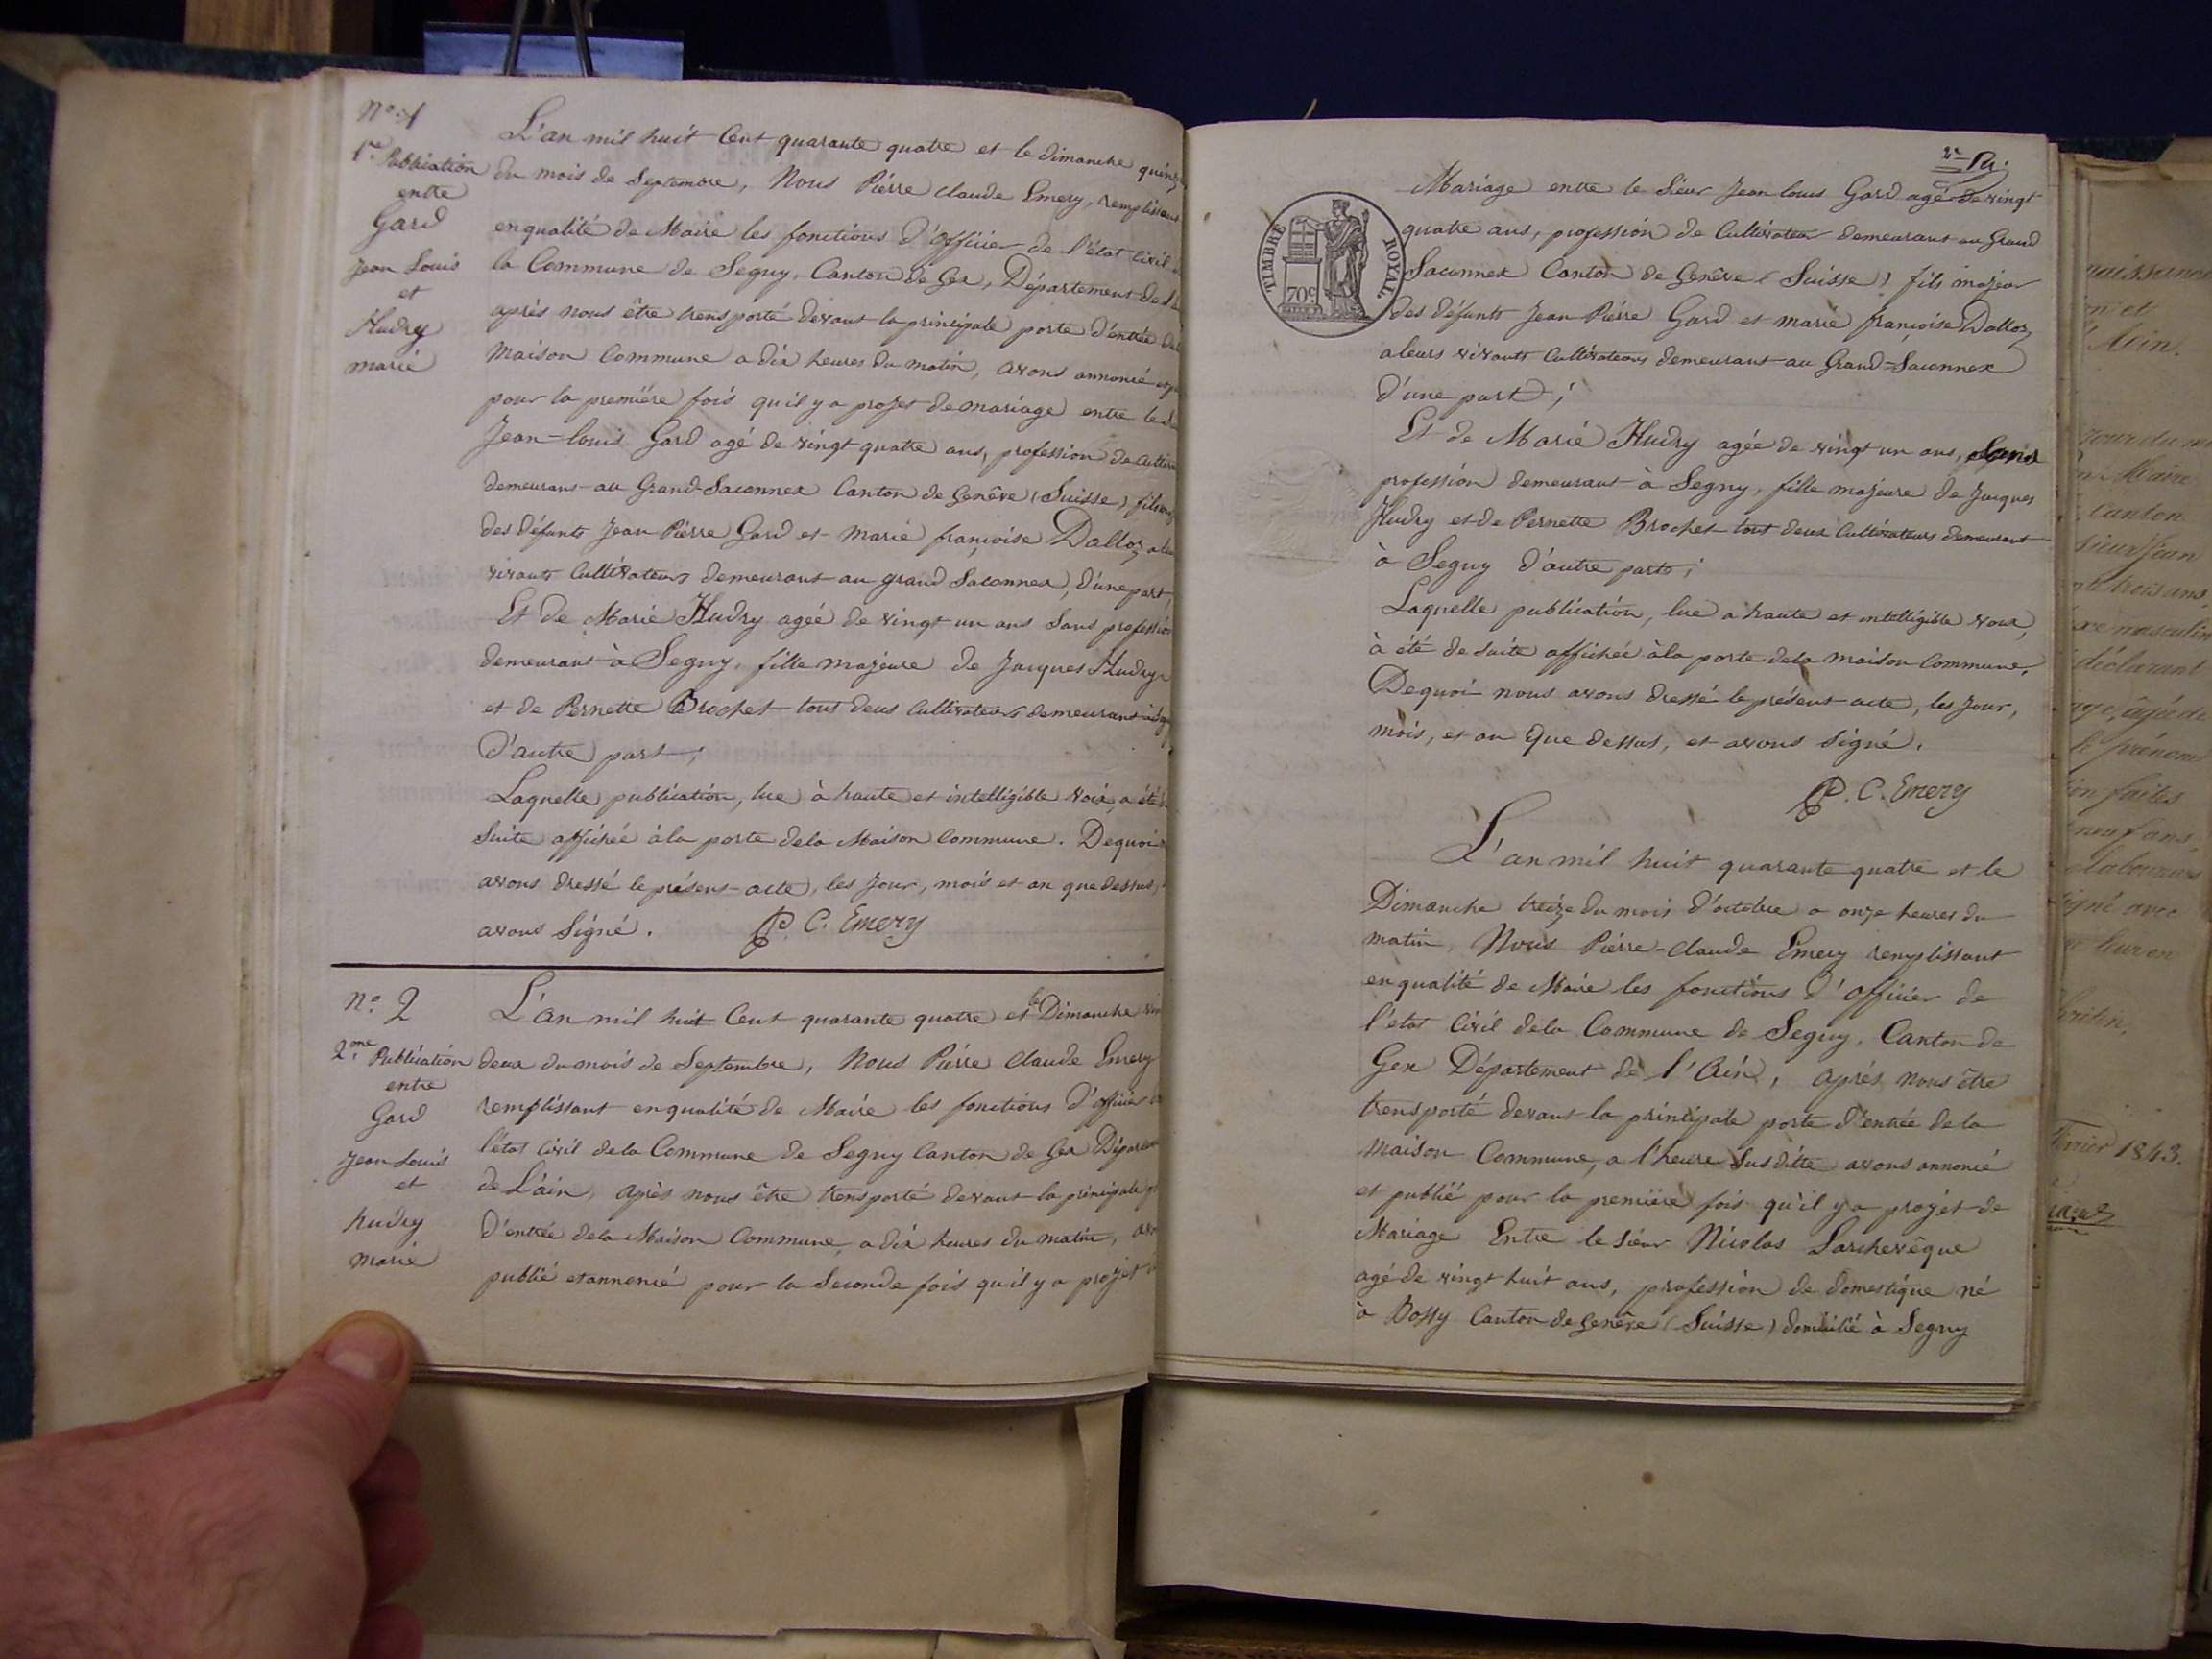 No. 1
1re Publication
entre
Gard
Jean Louis
et
Hudry
marie
L'an mil huit Cent quarante quatre et le dimanche quinze
du mois de Septembre, Nous Pierre claude Emery, remplissant
en qualité de Maire les fonctions d'officier de l'état Civil
la Commune de Segny, Canton de Gex, Département de
après nous être transporté devant la principale porte d'entrée
Maison Commune a dix heures du matin, avons annoncé
pour la première fois qu'il y a projet de mariage entre le
Jean-louis Gard agé de vingt quatre ans, profession de
demeurant au Grand-Saconnex Canton de Genêve (Suisse) fils
des défunts Jean Pierre Gard et Marie françoise Dalloz
vivants Cultivateurs demeurant au grand Saconnex, d'une part,
Et de Marie Hudry agée de vingt un ans Sans profession
demeurant à Segny, fille majeure de Jacques Hudry
et de Pernette Brochet tout deus Cultivateurs demeurant
D'autre part;
Laquelle publication, lue à haute et intelligible voix, a été
Suite affichée à la porte dela Maison Commune. Dequoi
avons dressé le présent acte, les Jour, mois et an que dessus,
avons Signé. P. C. Emery
no. 2
2me Publication
entre
Gard
Jean Louis
et
hudry
marie
L'an mil huit Cent quarante quatre et le Dimanche
deux du mois de Septembre, Nous Pierre Claude Emery
remplissant en qualité de Maire les fonctions d'officier
l'état Civil dela Commune de Segny Canton de Gex
de L'ain, après nous être transporté devant la principale
d'entrée dela Maison Commune, a dix heures du matin,
publié et annoncé pour la Seconde fois qu'il y a projet
TIMBRE ROYAL.
70c
Mariage entre le Sieur Jean louis Gard agé de vingt
quatre ans, profession de Cultivateur demeurant au Grand
Saconnex Canton de Genêve (Suisse) fils majeur
des défunts Jean-Pierre Gard et marie françoise Dalloz
a leurs vivants Cultivateurs demeurant au Grand-Saconnex
d'une part;
Et de Marie Hudry agée de vingt un ans, Sans
profession demeurant à Segny, fille majeure de Jacques
Hudry et de Pernette Brochet tout deux Cultivateurs demeurant
à Segny d'autre part;
Laquelle publication, lue a haute et intelligible voix,
à été de suite affichée à la porte dela maison Commune.
Dequoi nous avons dressé le présent acte, les jour,
mois, et an que dessus, et avons signé.
P. C. Emery
L'an mil huit quarante quatre et le
Dimanche treize du mois d'octobre a onze heures du
matin, Nous Pierre-Claude Emery remplissant
en qualité de Maire les fonctions d'officier de
l'etat Civil dela Commune de Segny, Canton de
Gex Département de l'Ain, après nous être
transporté devant la principale porte d'entrée de la
Maison Commune, a l'heure Susditte avons annoncé
et publié pour la première fois qu'il y a projet de
Mariage Entre le Sieur Nicolas Larchevêque
agé de vingt huit ans, profession de domestique né
à Bossy Canton de Genêve (Suisse) domicilié à Segny
Ain.
Maire
Canton
masculin
déclarant
prénom
faites
neuf ans,
signé avec
1843.